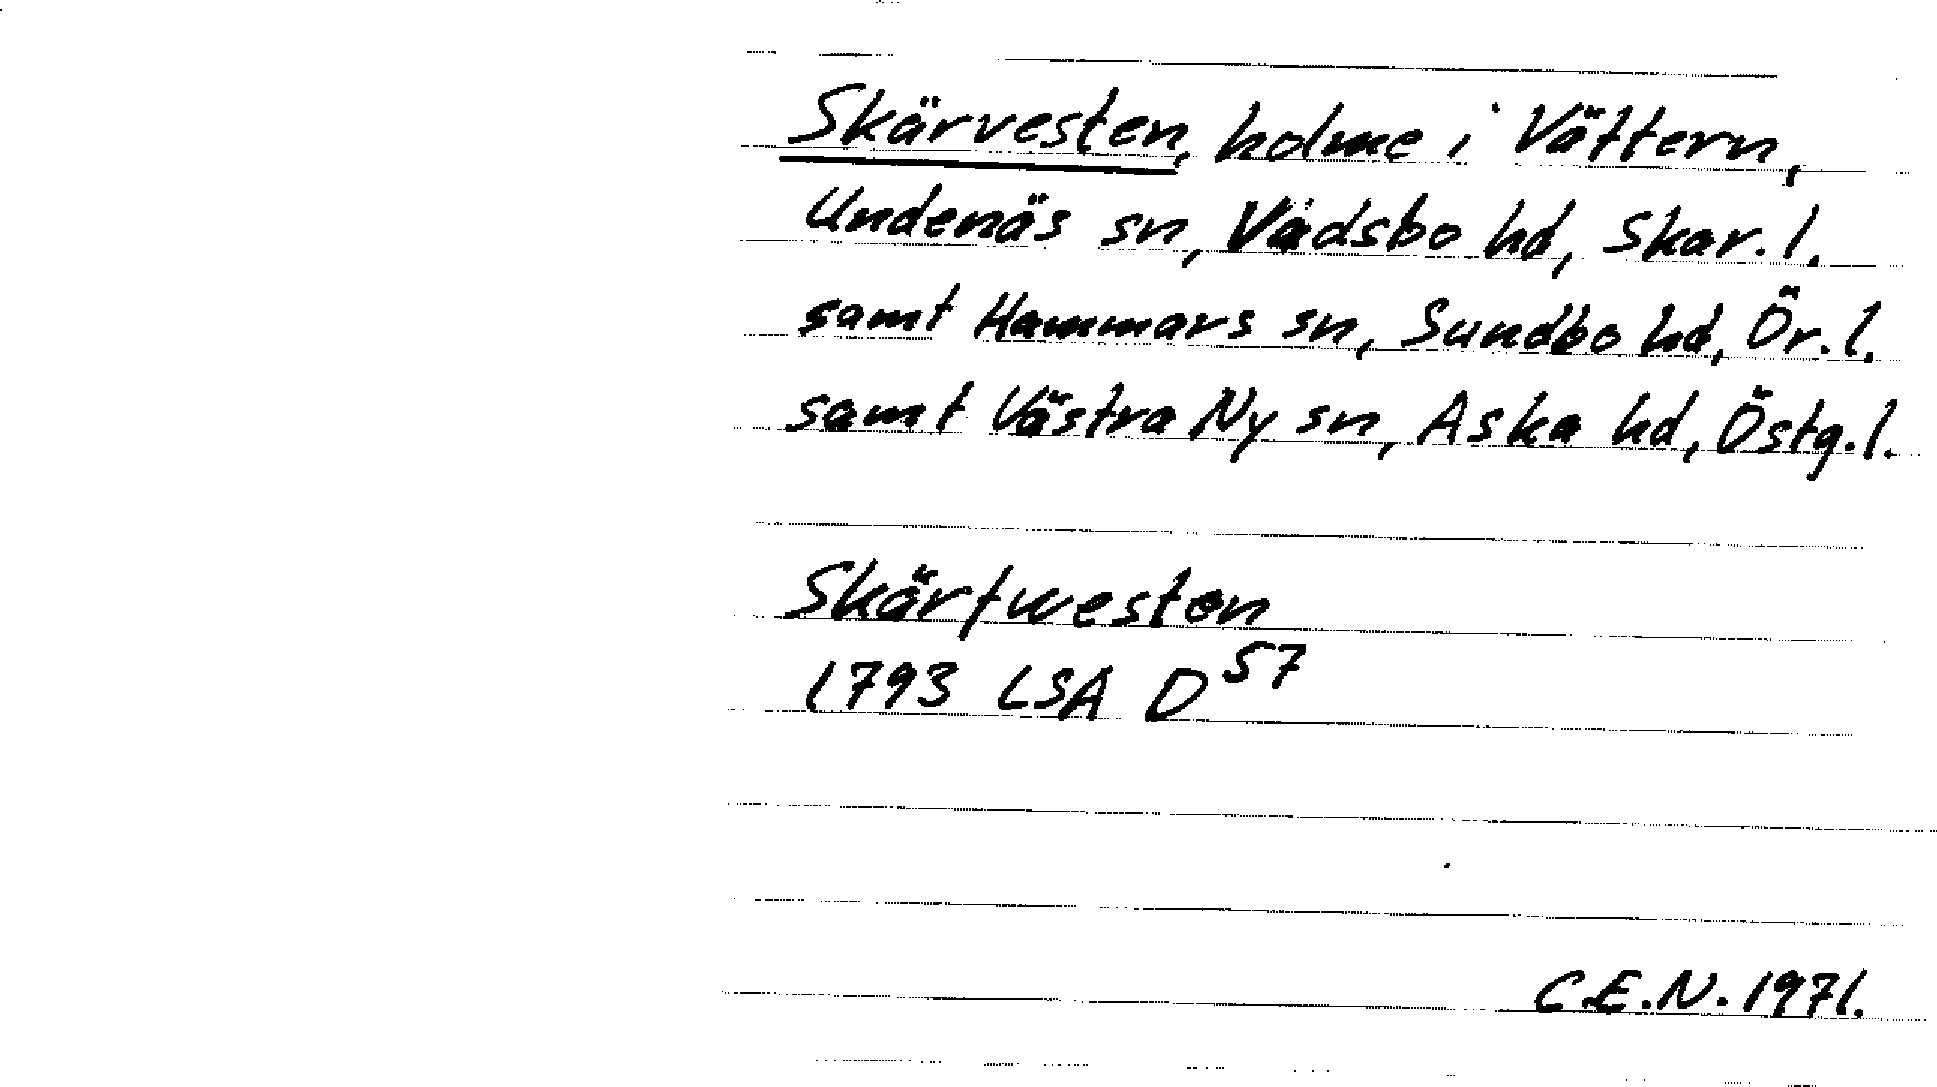 Skärvesten, holme i Vättern,
Undenäs sn, Vadsbo hd, Skar. l.
samt Hammars sn, Sundbo hd, Ör. l.
samt Västra Ny sn, Aska hd, Östg. l.
Skärfwesten
1793 LSA D 57
C.E.N. 1971.